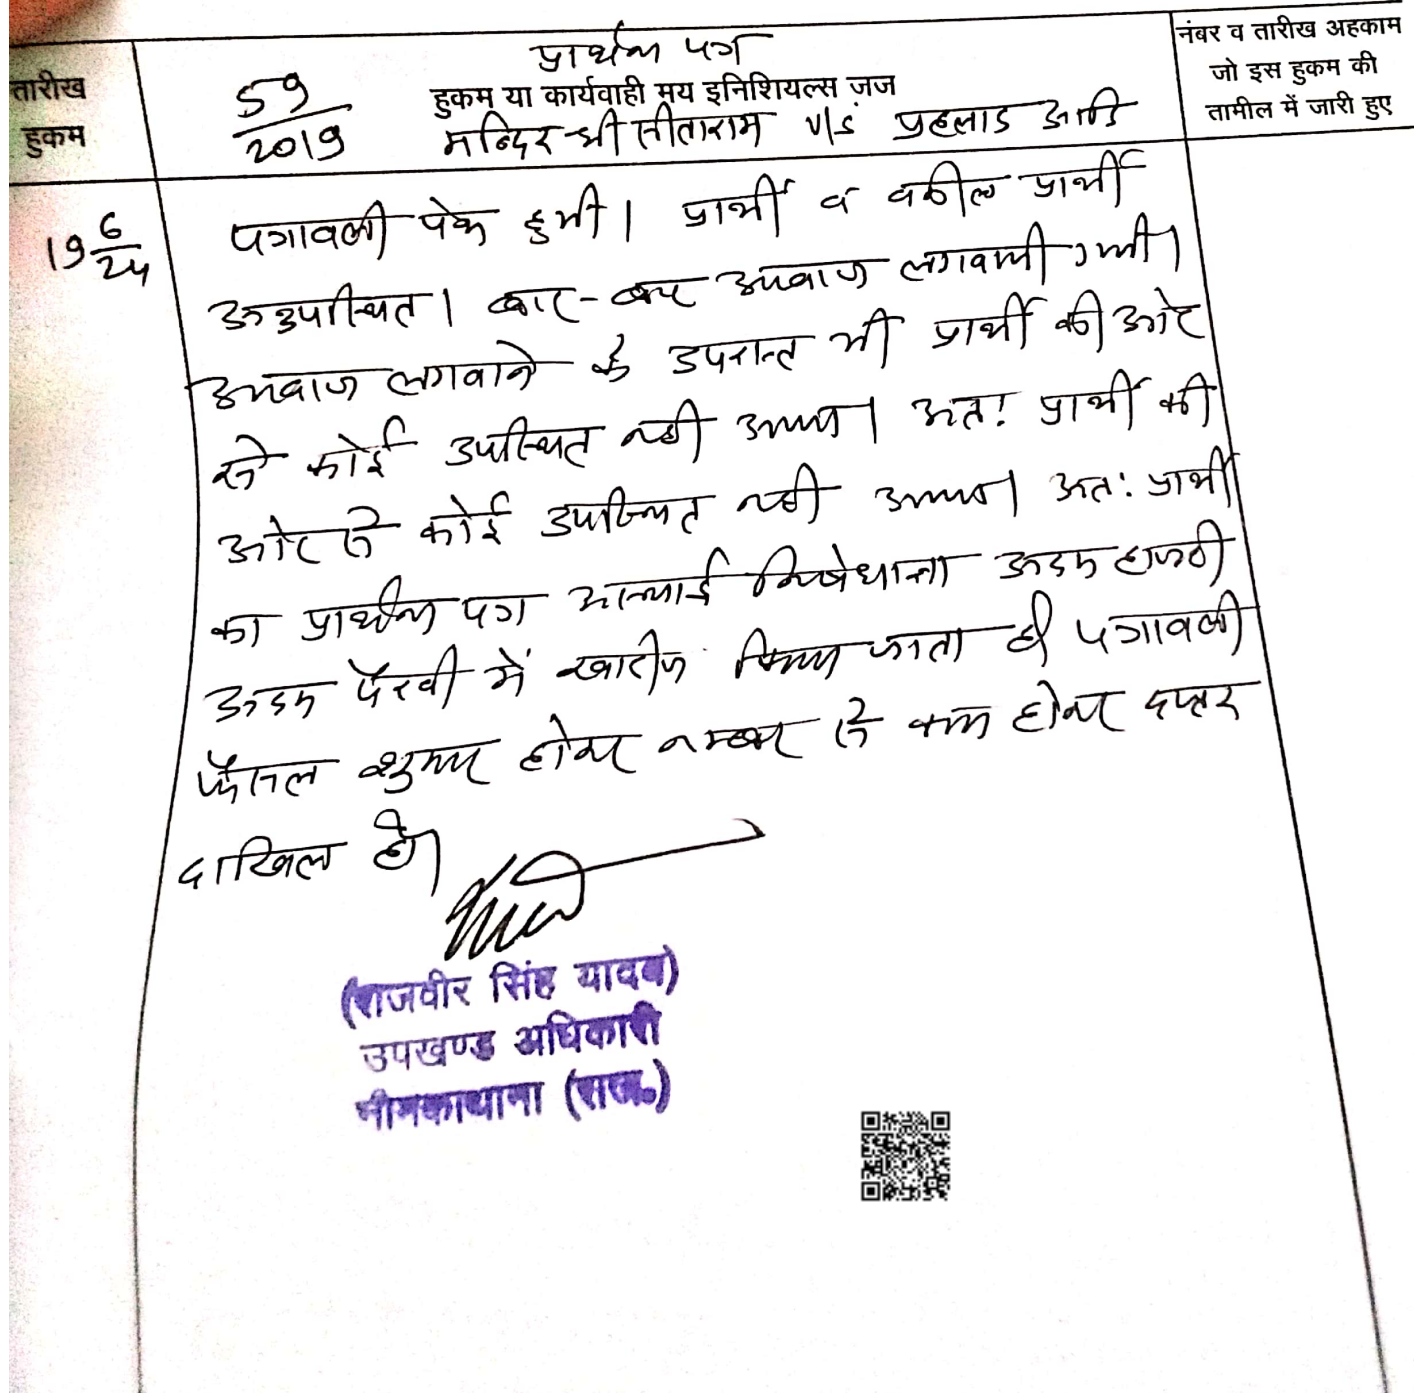 प्रार्थना पत्र
नंबर व तारीख अहकाम
तारीख
59/2019
हुकम या कार्यवाही मय इनिशियल्स जज
जो इस हुकम की
हुकम
मन्दिर श्री सीताराम v/s प्रहलाद आदि
तामील में जारी हुए
19 6/24
पत्रावली पेश हुयी। प्रार्थी व वकील प्रार्थी
अनुपस्थित। बार-बार आवाज लगवायी गयी।
आवाज लगवाने के उपरान्त भी प्रार्थी की ओर
से कोई उपस्थित नही आया। अतः प्रार्थी की
ओर से कोई उपस्थित नही आया। अतः प्रार्थी
का प्रार्थना पत्र अस्थाई निषेधाज्ञा अदम हाजरी
अदम पैरवी में खारीज किया जाता है। पत्रावली
फैसल शुमार होकर नम्बर से कम होकर दफ्तर
दाखिल हो।
(राजवीर सिंह यादव)
उपखण्ड अधिकारी
नीमकाथाना (राज०)